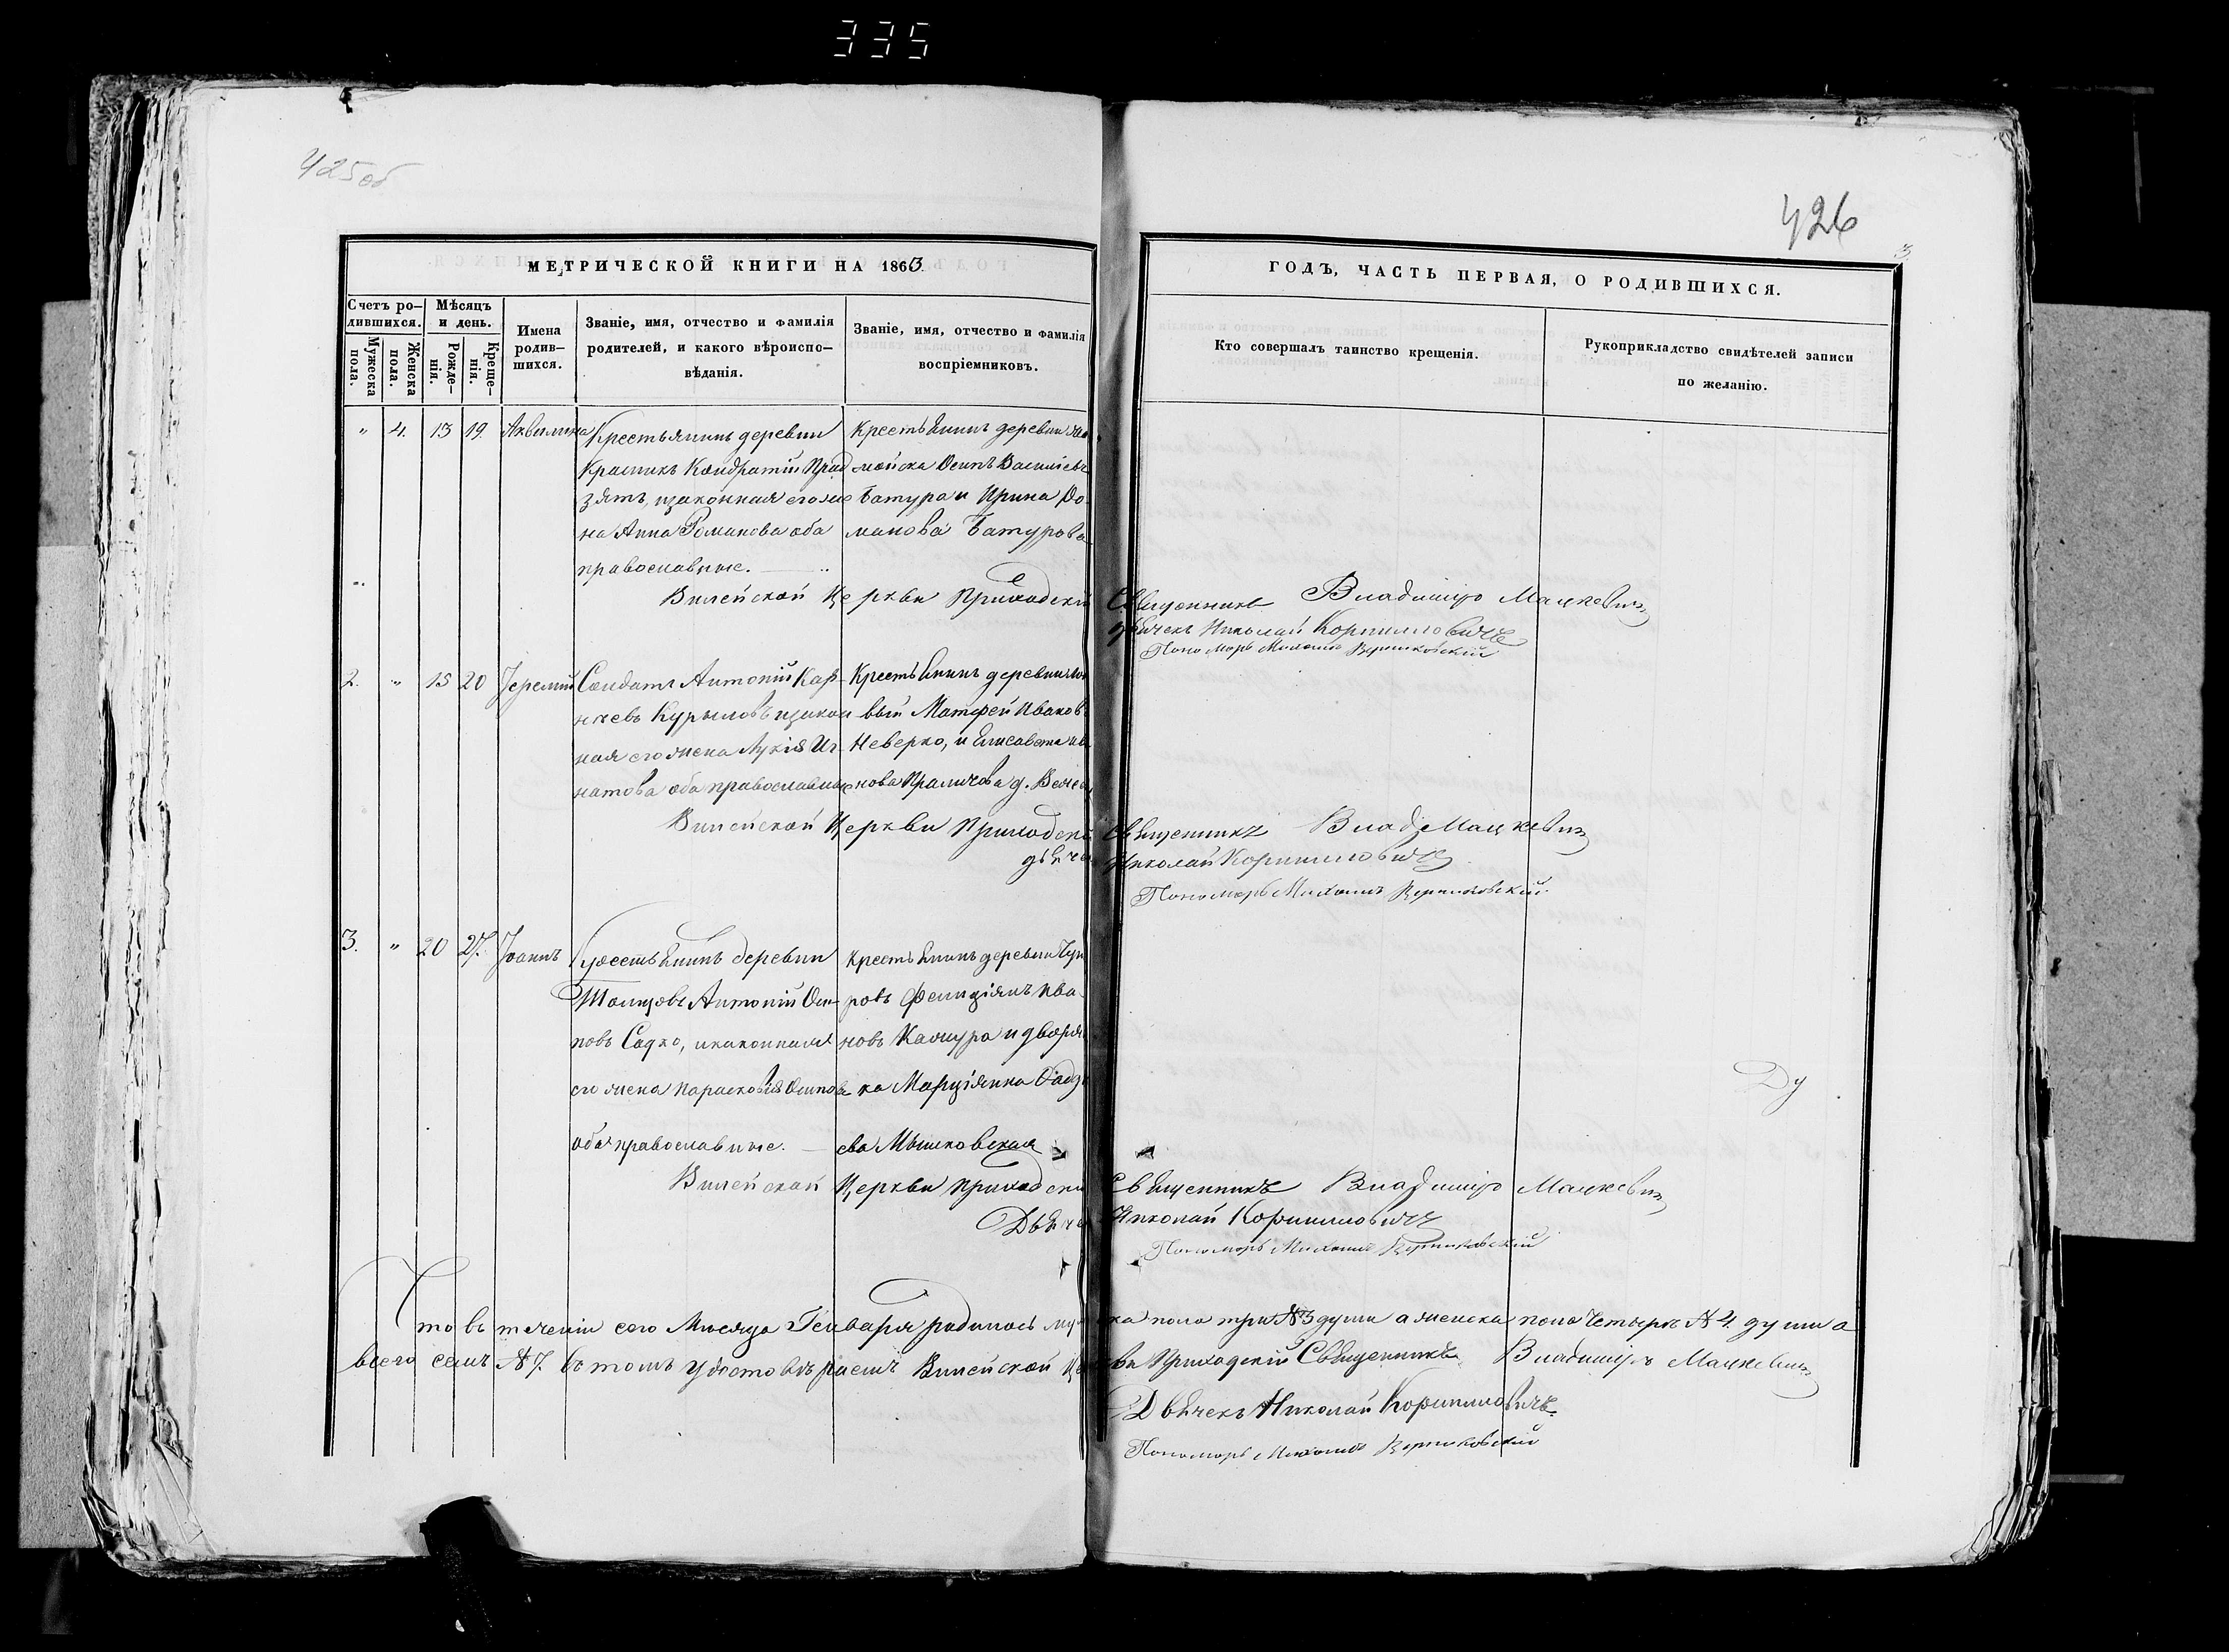 335
425 об
426
3
МЕТРИЧЕСКОЙ КНИГИ НА 1863.
ГОДЪ, ЧАСТЬ ПЕРВАЯ, О РОДИВШИХСЯ.
Счетъ ро-
дившихся.
Мужеска
пола.
Женска
пола.
Мѣсяцъ
и день.
Рожде-
нія.
Креще-
нія.
Имена
родив-
шихся.
Званіе, имя, отчество и фамилія
родителей, и какого вѣроиспо-
вѣданія.
Званіе, имя, отчество и фамилія
воспріемниковъ.
Кто совершалъ таинство крещенія.
Рукоприкладство свидѣтелей записи
по желанію.
" 4. 13 19. Аквилина
Крестьянинъ деревни
Кондратій
законная его же
на Анна Романова оба
православные.
Крестьянинъ деревни
Осипъ
Батура и Ирина До
манова Батурова
Вилейской Церкви Приходскій Священникъ Владиміръ Мацкевич
Дьячекъ Николай Корниловичъ
Пономарь Михаилъ
2. " 15 20 Іеремій
Солдатъ Антоній Кар-
нѣевъ Курыловъ и закон
ная его жена Лукія Иг-
натова оба православные
Крестьянинъ деревни
вый Матфей Иванов
Неверко, и Елисавета Ива
нова д.
Вилейской Церкви Приходскій Священникъ Влад. Мацкевич
Дьячекъ Николай Корниловичъ
Пономарь Михаилъ
3. " 20 27. Іоаннъ
Крестьянинъ деревни
Антоній Оси-
повъ Садко, и законная
его жена Парасковія Осипова
оба православные.
Крестьянинъ деревни
ровъ Ива
новъ и дворян
ка Марціянна
ева Мышковская
Вилейской Церкви Приходскій Священникъ Владиміръ Мацкевич
Дьячекъ Николай Корниловичъ
Пономарь Михаилъ
Что въ теченіи сего Мѣсяца Генваря родилось муж ка пола три № 3 души а женска пола четыре № 4. души а
всего семъ № 7. въ томъ удостовѣряемъ Вилейской Цер кви Приходскій Священникъ Владиміръ Мацкевич
Дьячекъ Николай Корниловичъ.
Пономарь Михаилъ